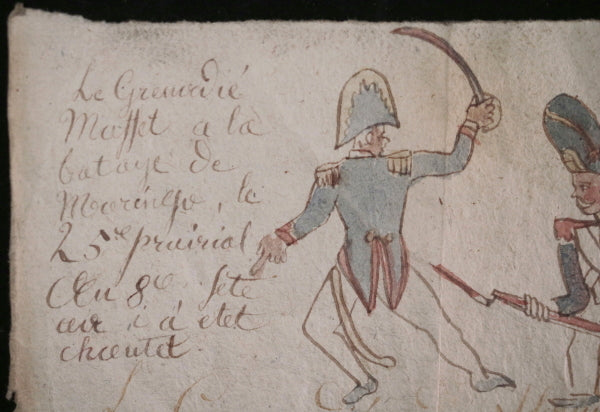 Le Grenadié
Masset a la
bataye de
Maaringo, le
25e prairial
An 8e sete
air i á etet
chantet.